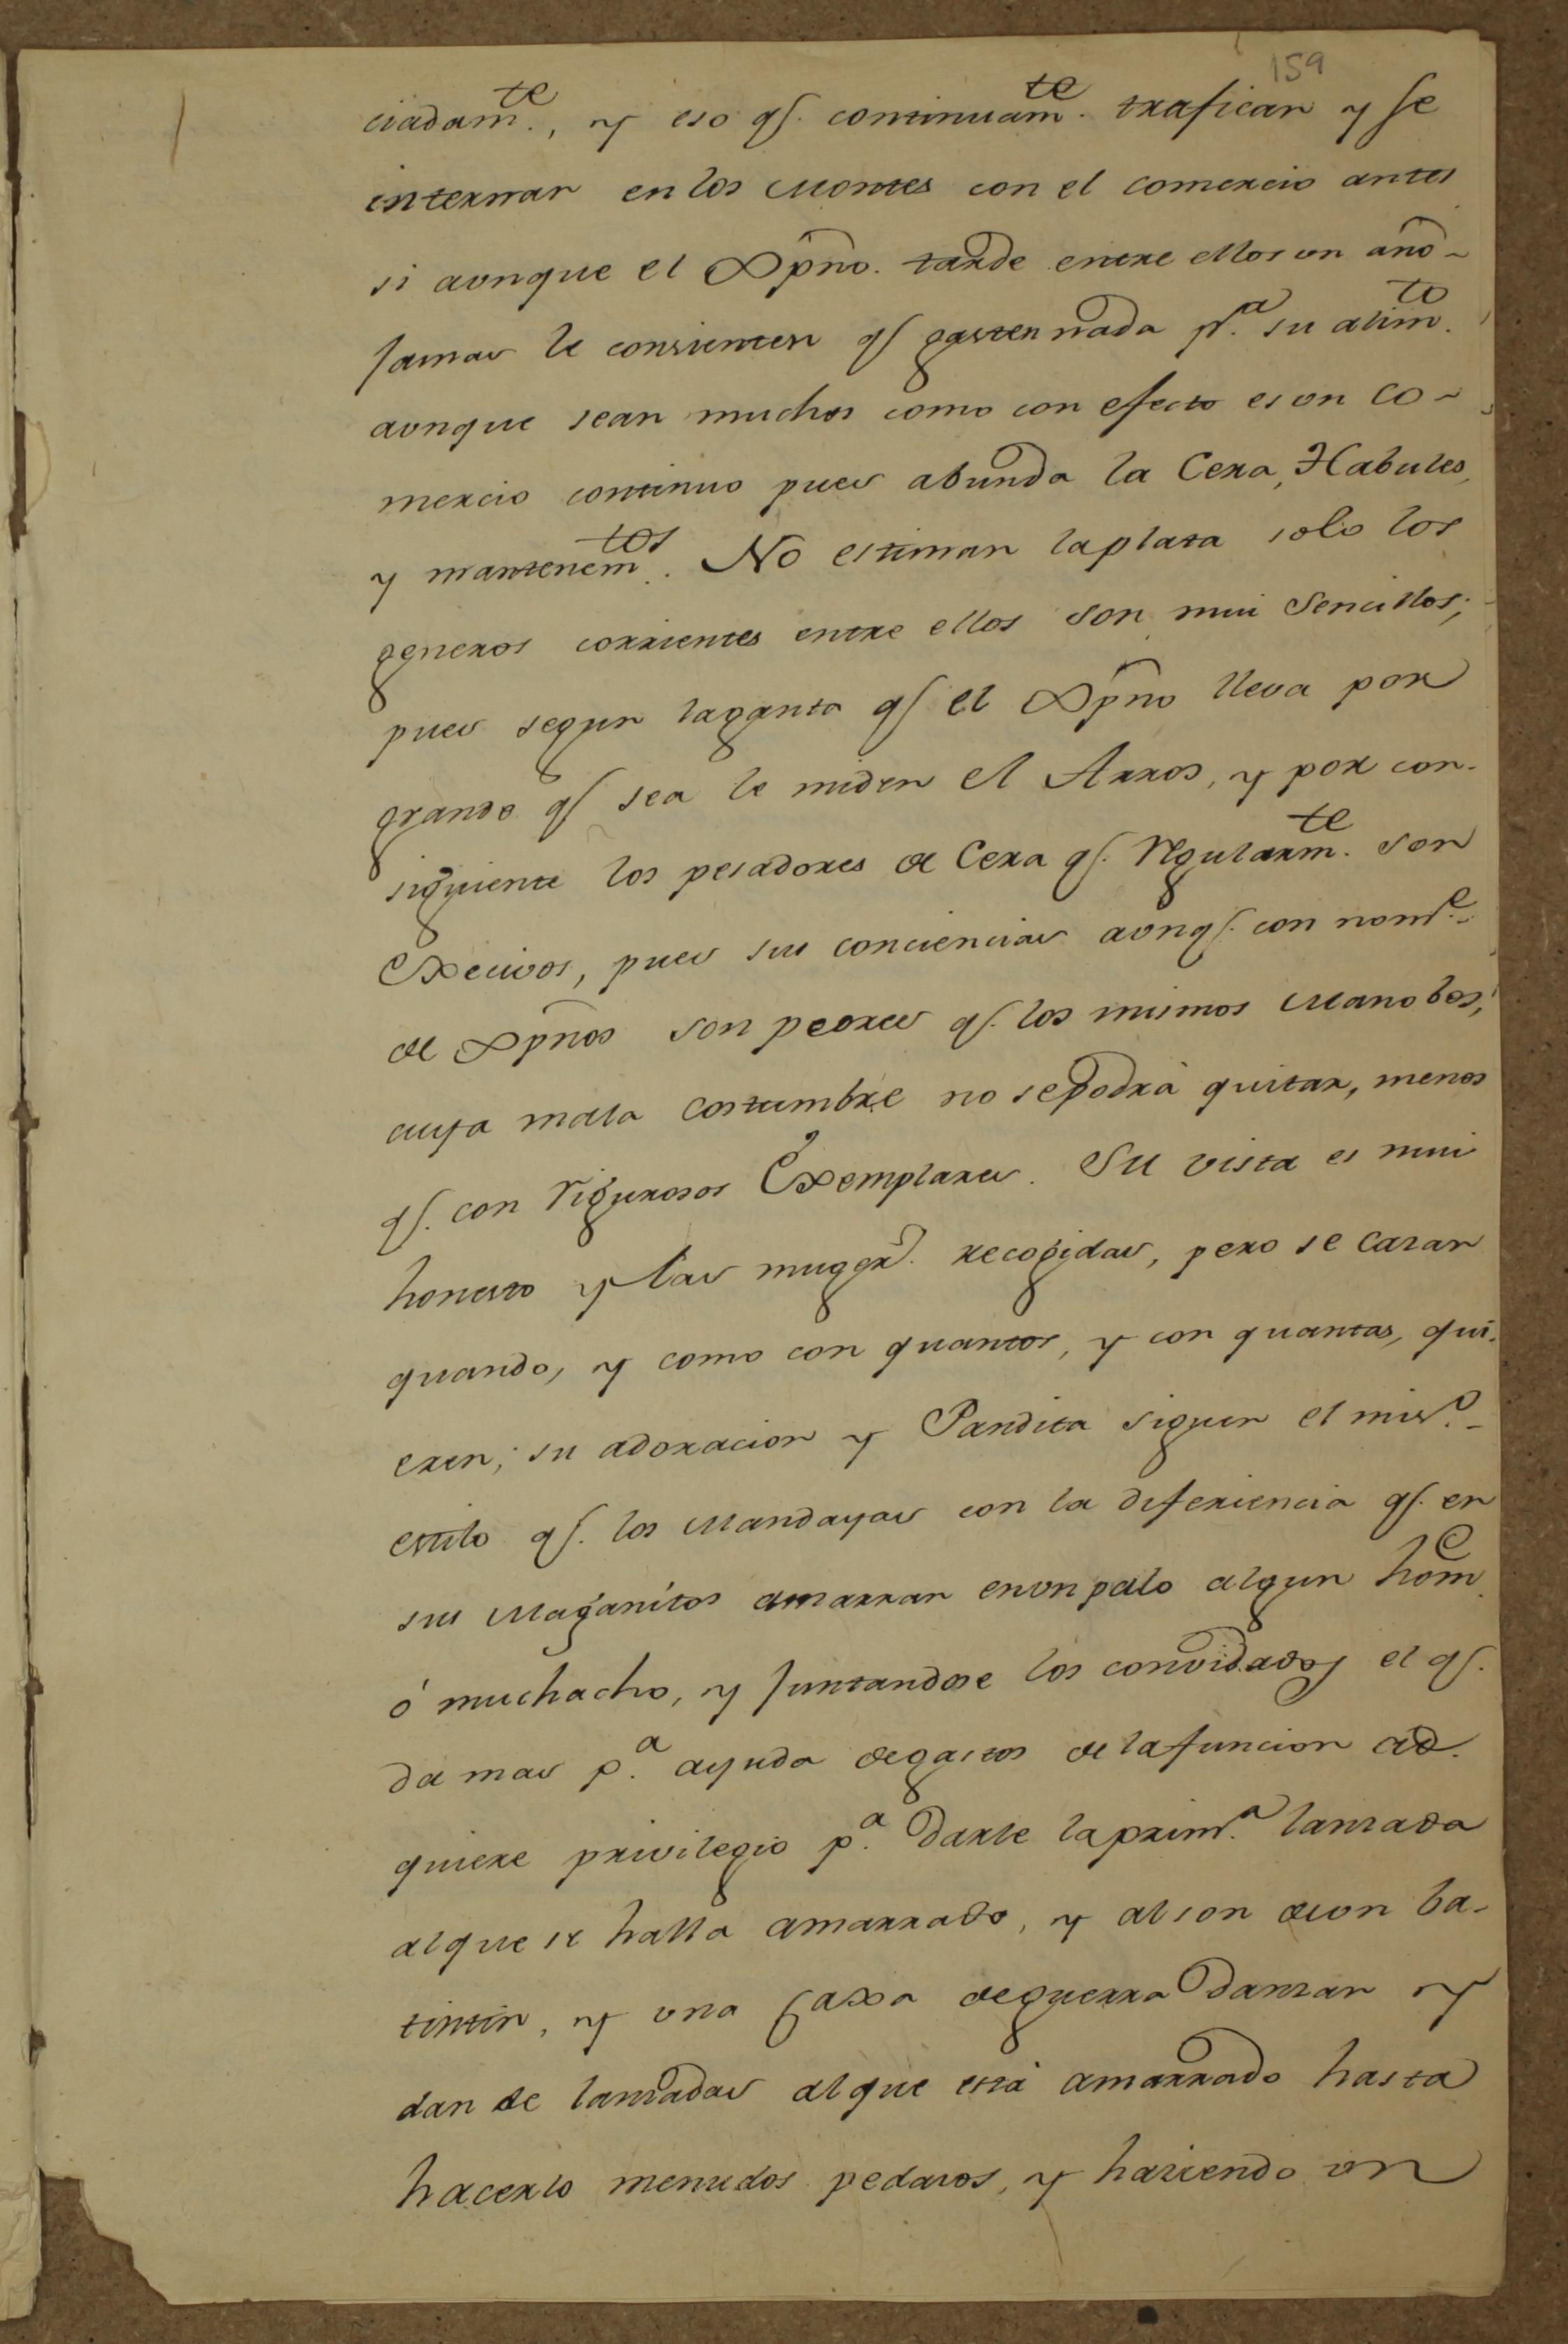 159
ciadam.te, y eso q.e continuam.te trafican y se
internan en los Montes con el comercio antes
si aunque el Xpno. tarde entre ellos un año
Jamas le consienten q.e gasten nada p.a su alim.to
aunque sean muchos como con efecto es un co-
mercio continuo pues abunda la Cera, Habules,
y mantenem.tos. No estiman la plata solo los
generos corrientes entre ellos son mui Sencillos;
pues segun la ganta q.e el Xpno lleva por
grande q.e sea le miden el Arros, y por con-
siguiente los pesadores de Cera q.e Regularm.te son
Excecivos, pues sus conciencias aunq.e con nomr.e
de Xpnos son peores q.e los mismos Manobos,
cuya mala costumbre no se podrà quitar, menos
q.e con Rigurosos Exemplares. Su vista es mui
honesto y las muger.s recogidas, pero se casan
quando, y como con quantos, y con quantas, qui-
eren; su adoracion y Pandita siguen el mis.o
estilo q.e los Mandayas con la diferiencia q.e en
sus Maganitos amarran en un palo algun hom.e
ó muchacho, y Juntandose los convidados el q.e
da mas p.a ayuda de gastos de la funcion ad-
quiere privilegio p.a darle la prim.a lanzada
al que se halla amarrado, y al son de un ba-
tintin, y una Caxa de guerra danzan y
dan de lanzadas al que està amarrado hasta
hacerlo menudos pedazos, y haziendo un